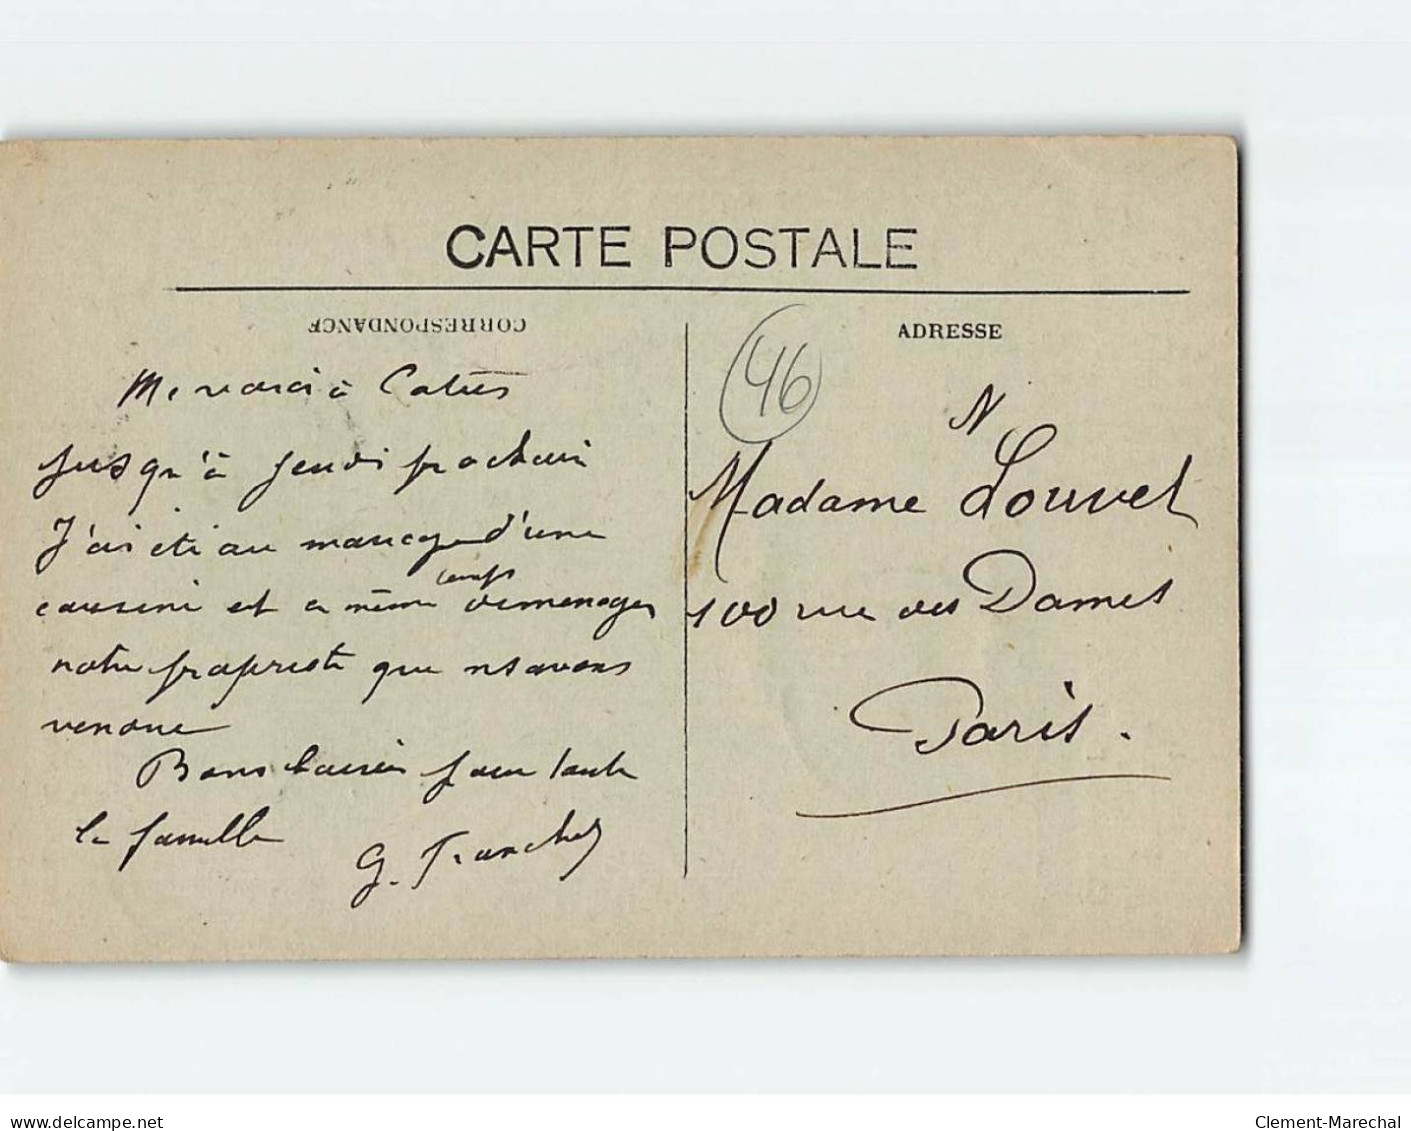 CARTE POSTALE
CORRESPONDANCE
Me voici à Catus
jusqu'à jeudi prochain
J'ai été au mariage d'une
cousine et en même temps demenager
notre propriété que ns avons
vendue
Bons baisers pour toute
la famille
G.
ADRESSE
46
Madame Louvel
100 rue des Dames
Paris.
delcampe.net
Clement-Marechal